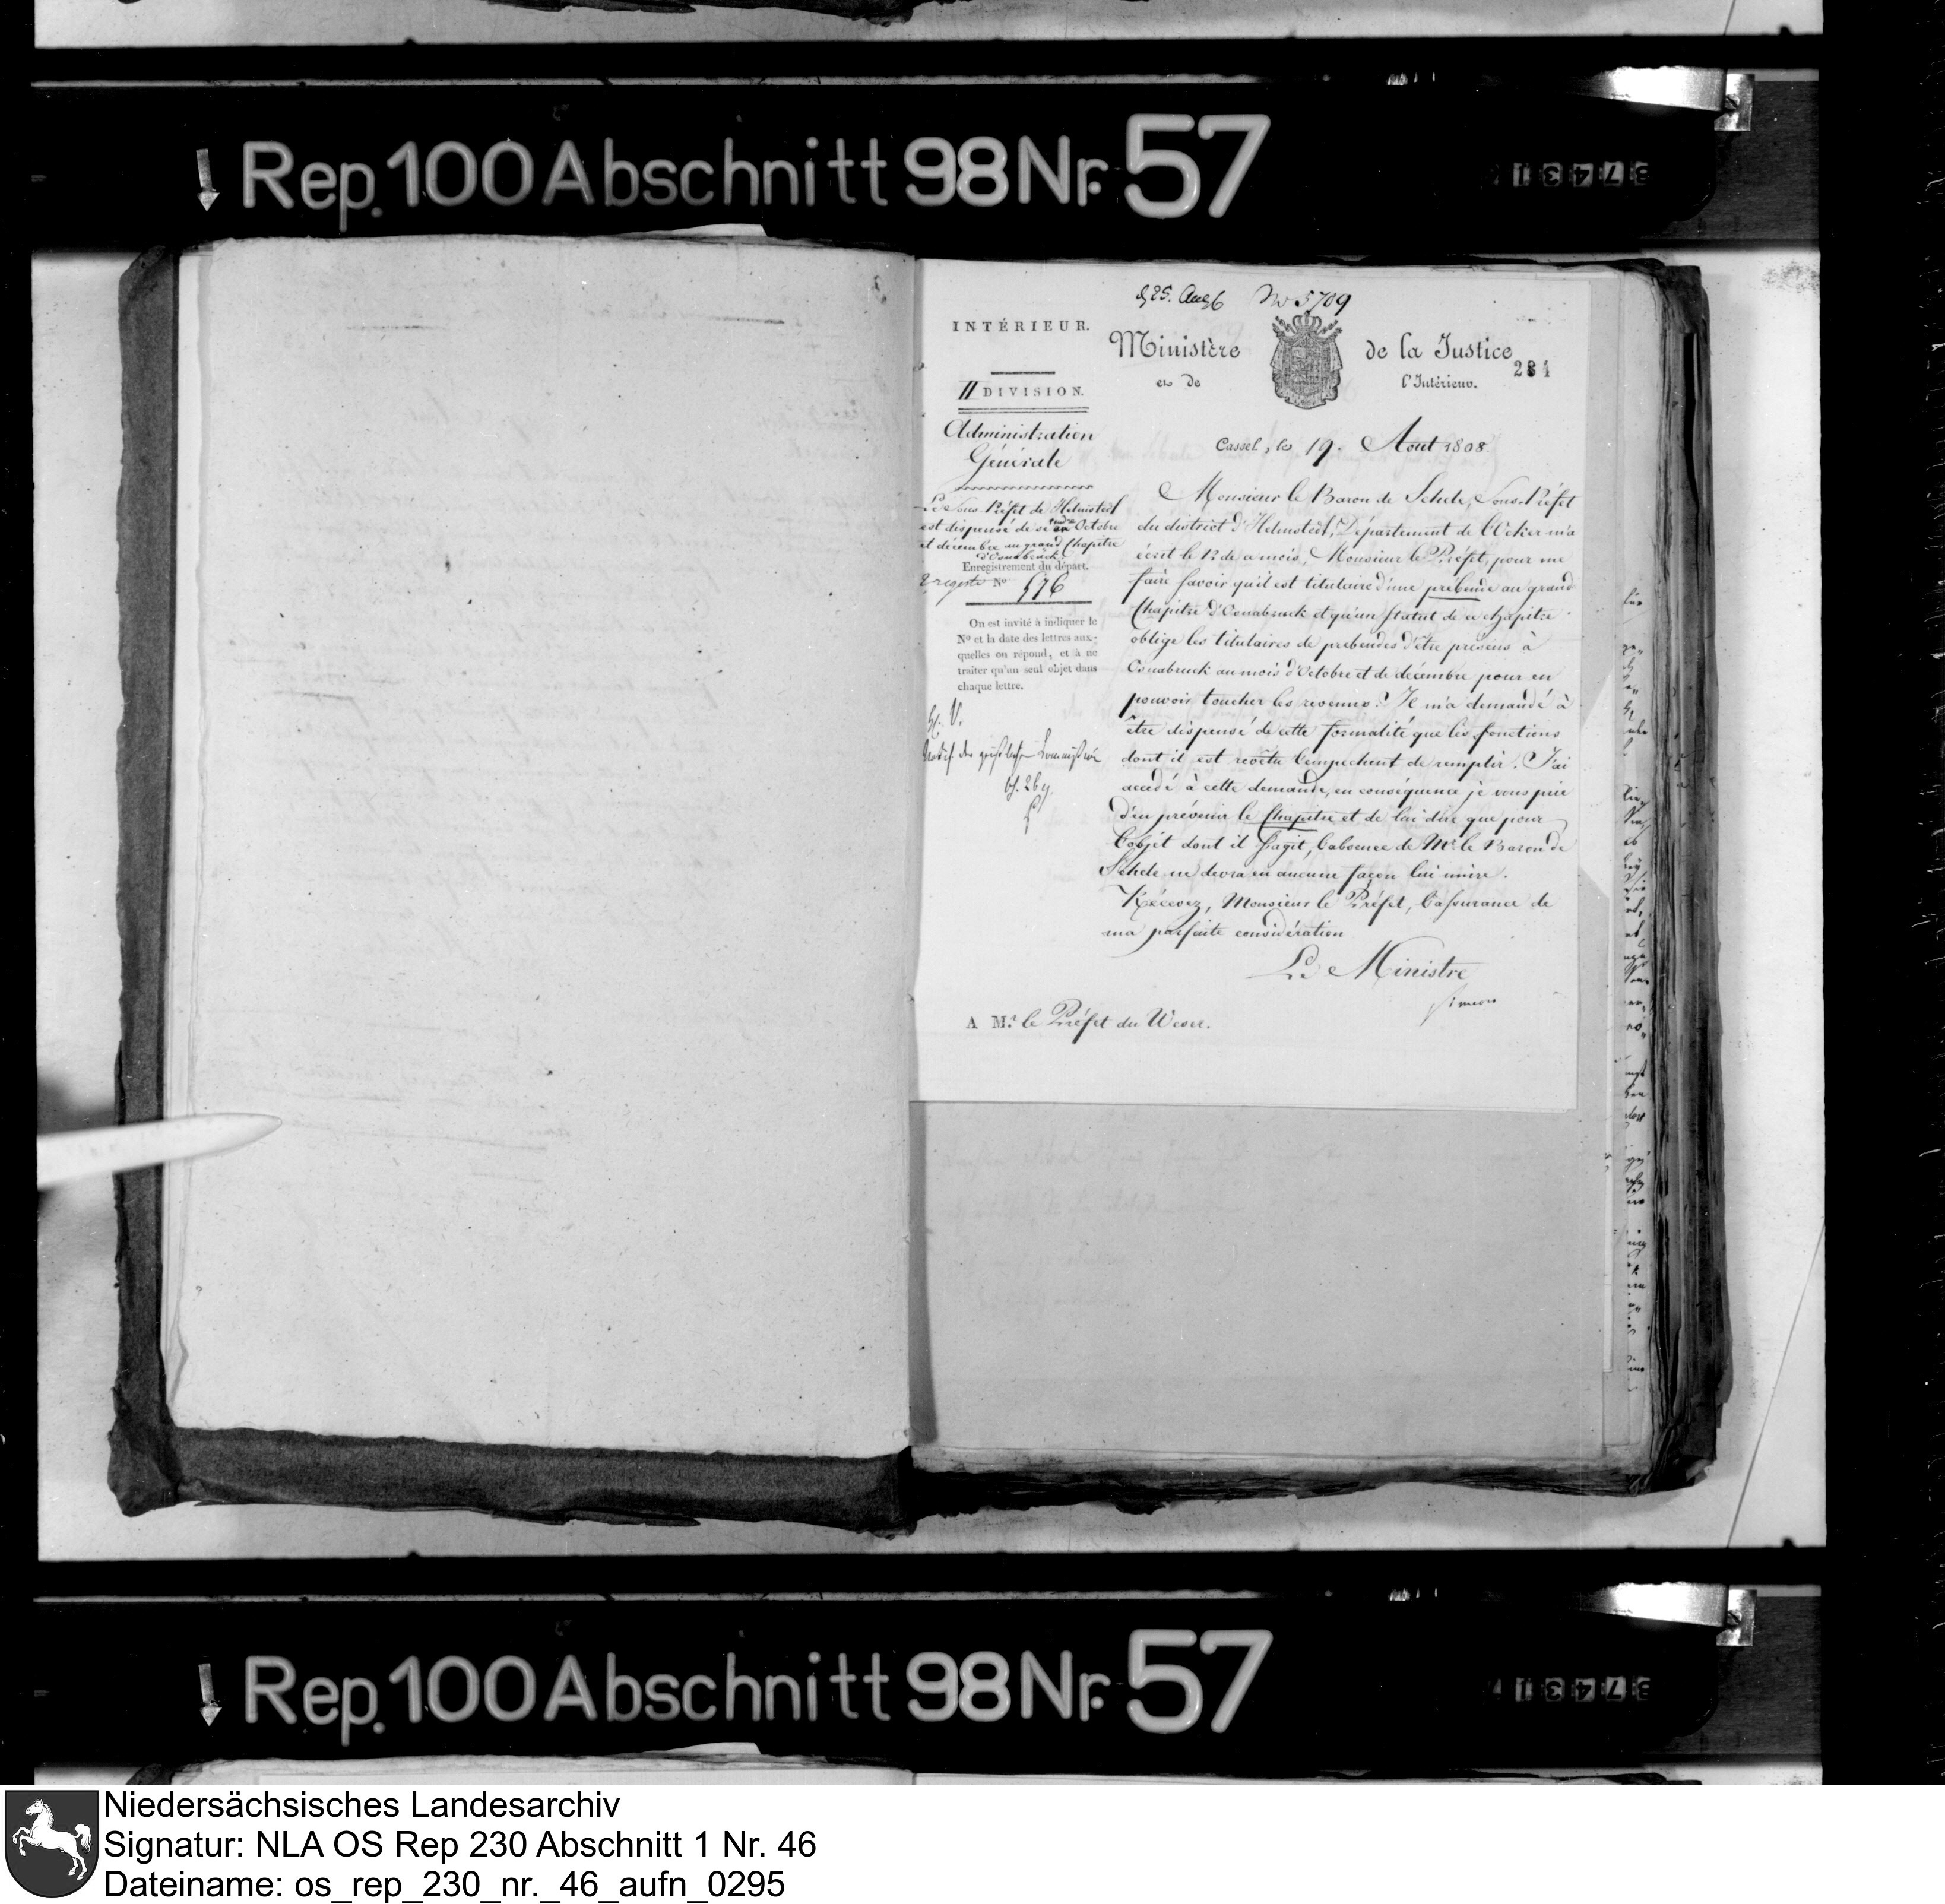 Rep. 100 Abschnitt 98 Nr. 57
No 5709
INTÉRIEUR.
Ministère de la Justice
et de l'Intérieur.
284
II DIVISION.
Administration
Générale
Cassel, le 19. Aout 1808
Le Sous-Préfet de Helmstedt
est dispensé de se rendre en Octobre
et décembre au grand Chapitre
d'Osnabrück.
Enregistrement du départ.
No 576
On est invité à indiquer le
No et la date des lettres aux-
quelles on répond, et à ne
traiter qu'un seul objet dans
chaque lettre.
Monsieur le Baron de Schele, Sous-Préfet
du district d'Helmstedt, Département de l'Ocker m'a
écrit le 12 de ce mois, Monsieur le Préfet, pour me
faire savoir qu'il est titulaire d'une prébende au grand
Chapitre d'Osnabruck et qu'un statut de ce chapitre
oblige les titulaires de prebendes d'être présens à
Osnabruck au mois d'Octobre et de décembre pour en
pouvoir toucher les revenus. Il m'a demandé à
être dispensé de cette formalité que les fonctions
dont il est revêtu l'empechent de remplir. J'ai
accedé à cette demande, en conséquence je vous prie
d'en prévenir le Chapitre et de lui dire que pour
l'objet dont il s'agit, l'absence de Mr. le Baron de
Schele ne devra en aucune façon lui nuire.
Récevez, Monsieur le Préfet, l'assurance de
ma parfaite considération
Le Ministre
Simeon
A Mr. le Préfet du Weser.
Rep. 100 Abschnitt 98 Nr. 57
Niedersächsisches Landesarchiv
Signatur: NLA OS Rep 230 Abschnitt 1 Nr. 46
Dateiname: os_rep_230_nr._46_aufn_0295